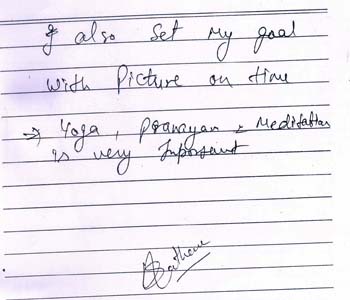 I also set my goal
with Picture on time
⇒ Yoga, Pranayan & Meditation
is very Important